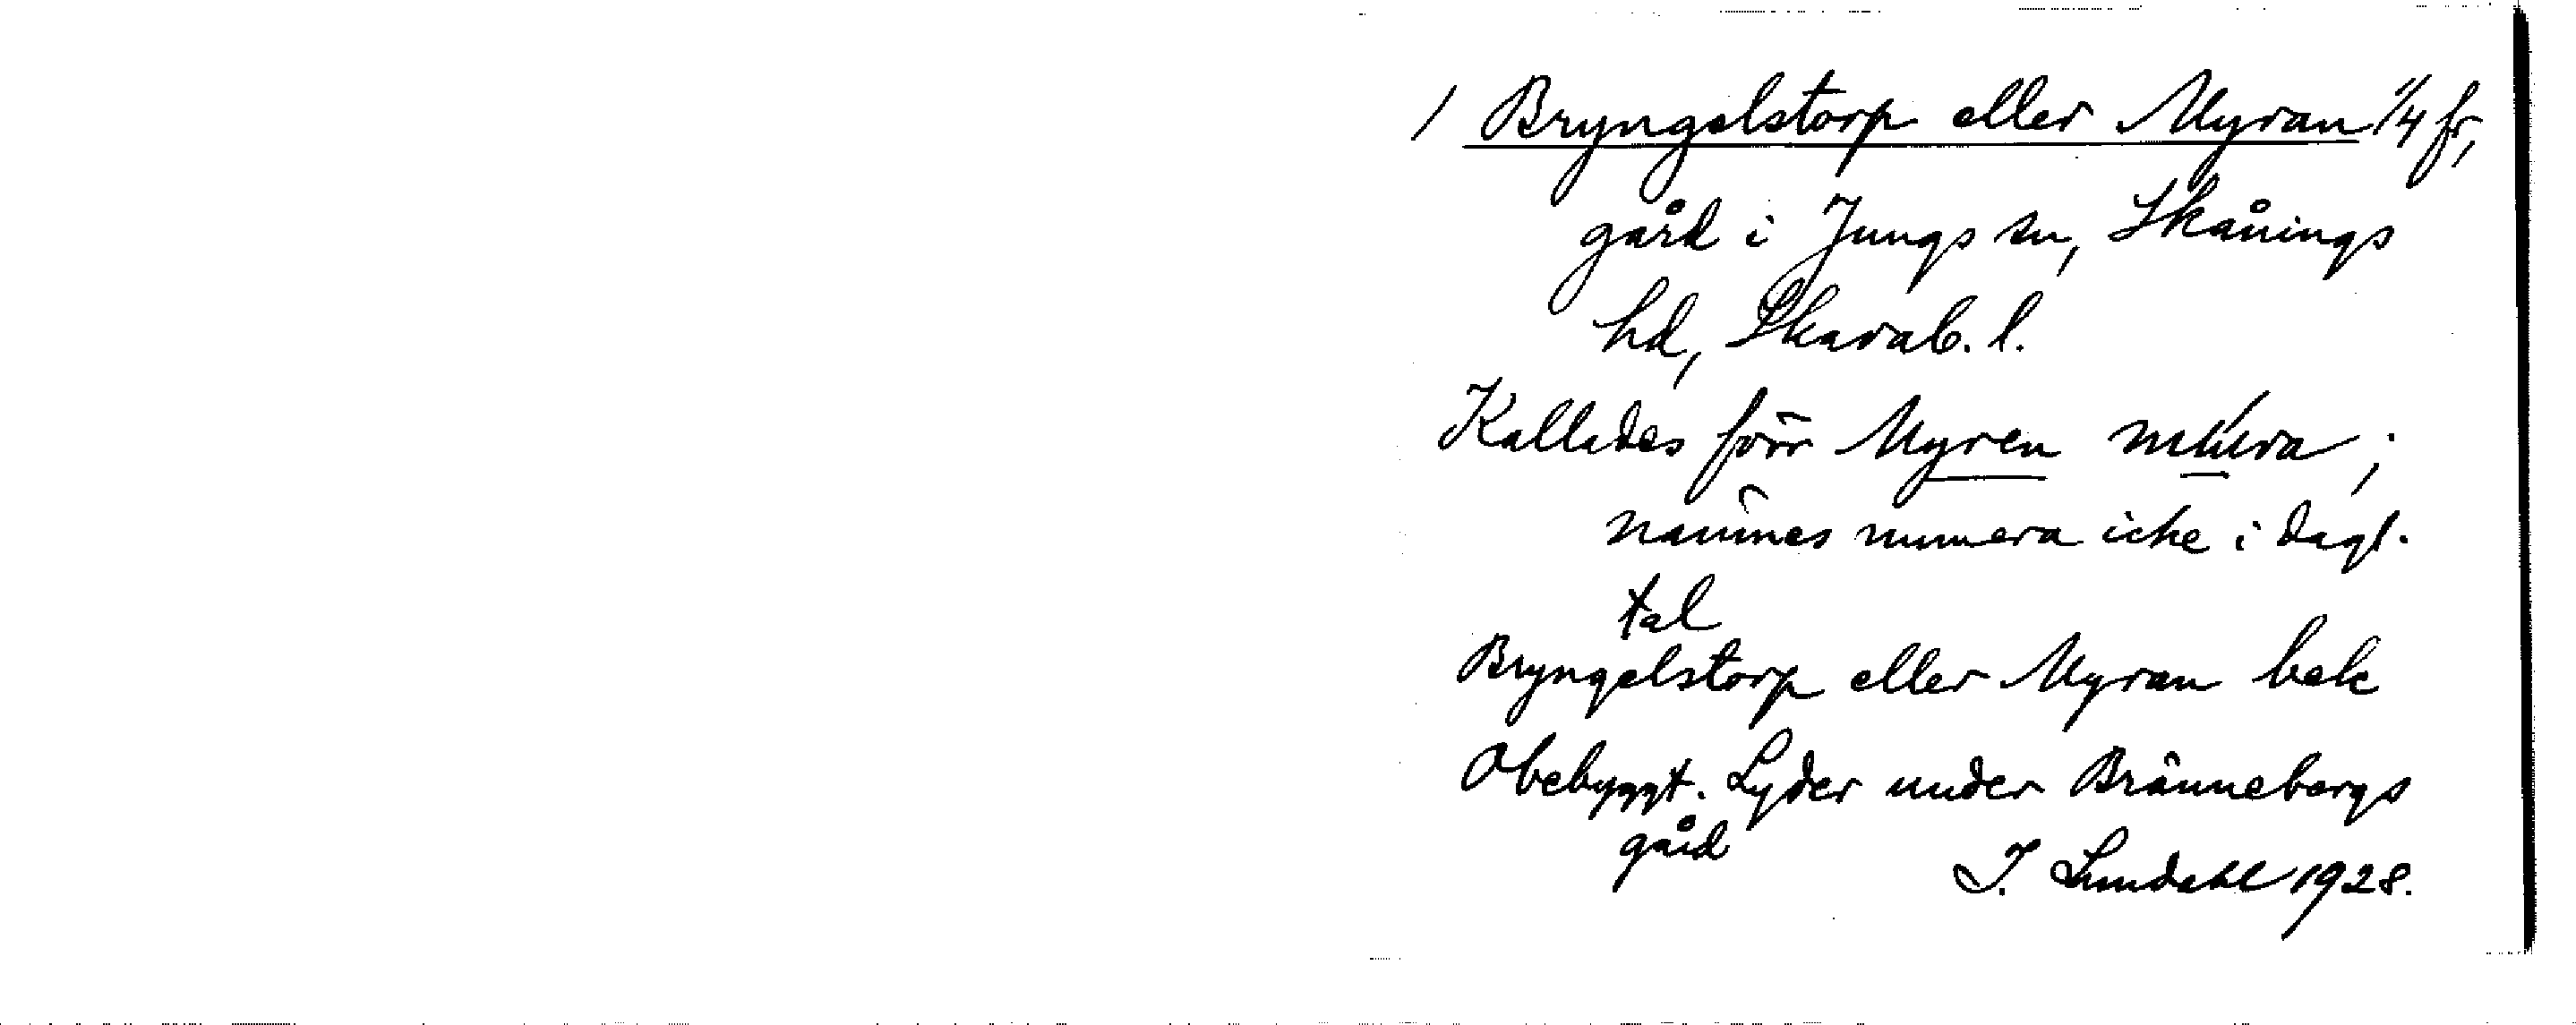 / Bryngelstorp eller Myran 1/4 fr,
gård i Jungs sn, Skånings
hd, Skarab. l.
Kallades förr Myren
nämnes numera icke i dagl.
tal
Bryngelstorp eller Myran bek
Obebyggt. Lyder under Brännebergs
gård
I. Lundahl 1928.